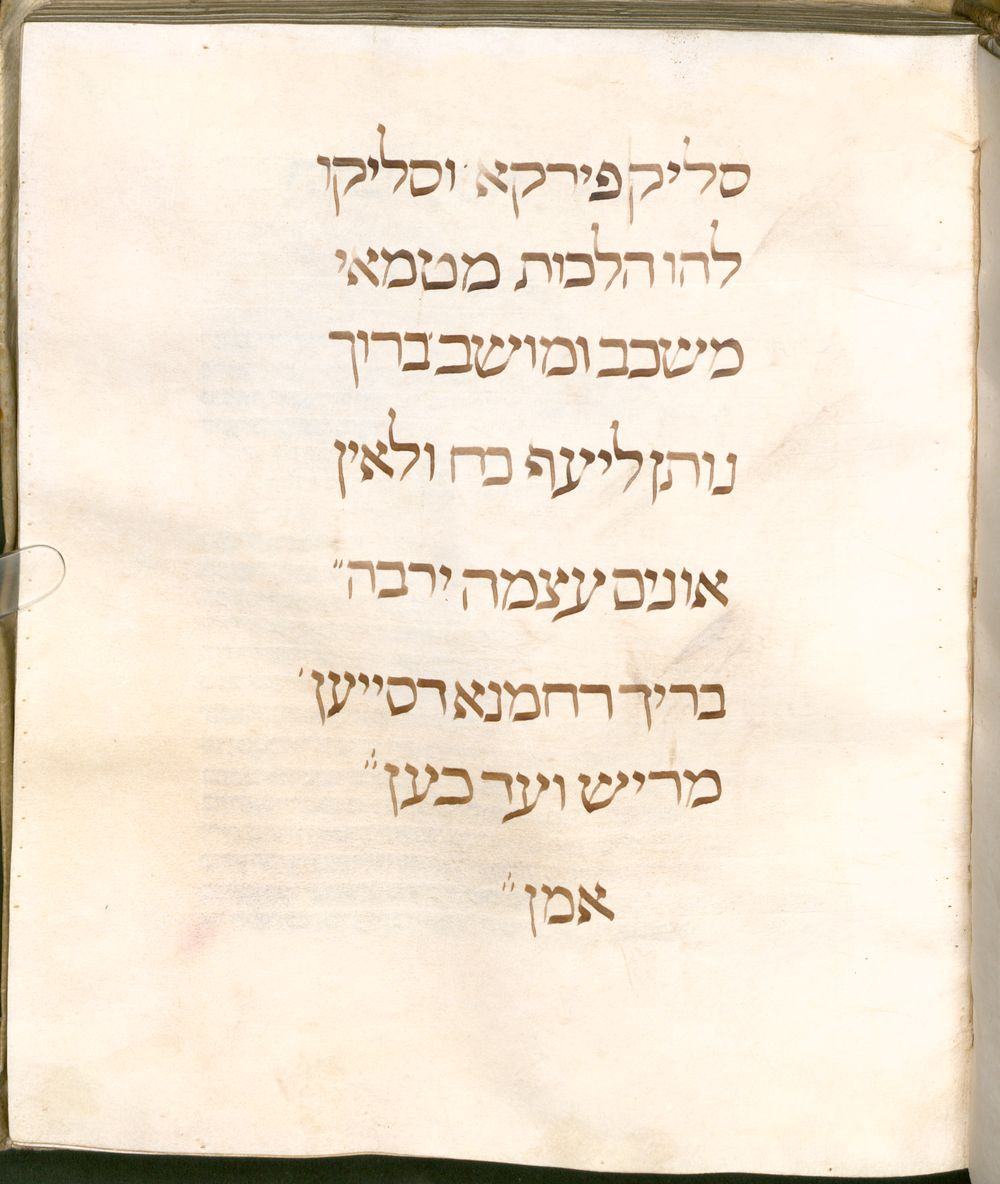 סליק פירקא וסליקו
להו הלכות מטמאי
משכב ומושב ברוך
נותן ליעף כח ולאין
אונים עצמה ירבה״
בריך רחמנא דסייען׳
מריש ועד כען״
אמן״